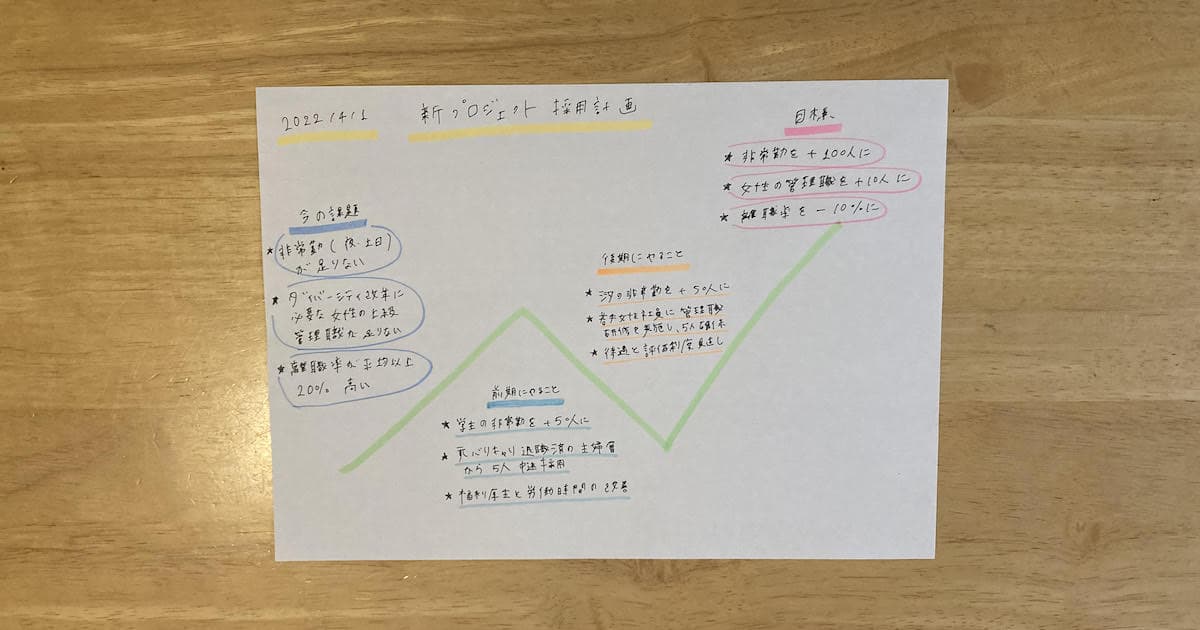 2022/4/1
新プロジェクト 採用計画
目標
★ 非常勤を +100人に
★ 女性の管理職を +10人に
★ 離職率を -10%に
今の課題
★ 非常勤(夜・土日)
が足りない
★ ダイバーシティ改革に
必要な女性の上級
管理職が足りない
★ 離職率が平均以上
20% 高い
前期にやること
★ 学生の非常勤を +50人に
★ 元バリキャリ退職済の主婦層
から5人 中途採用
★ 福利厚生と労働時間の改善
後期にやること
の非常勤を +50人に
★ 若手女性社員に管理職
研修を実施し、5人確保
★ 待遇と評価制度見直し